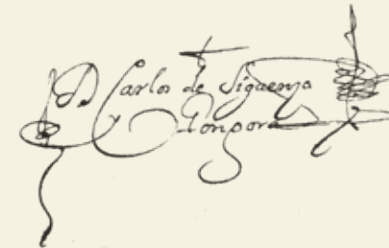 D. Carlos de Siguenza
y Gongora